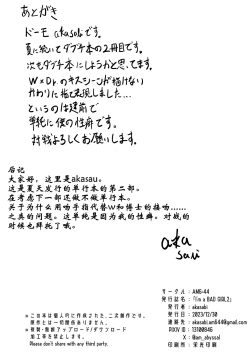 あとがき
ドーモ akasoriです。
夏に続いてダブチ本の2冊目です。
次もダブチ本にしようかと思ってます。
W×Dr.のキスシーンが描けない
かわりに指で表現しました…
というのは建前で
単純に僕の性癖です。
対戦よろしくお願いします。
后记
大家好，这里是akasau。
这是夏天发行的单行本的第二部。
在考虑下一部还做不做单行本。
关于为什么用吻手指代替W和博士的接吻……
之类的问题。这单纯是因为我的性癖。对战的
时候也拜托了哦。
aka
sari
※この本は個人的に作成された、二次創作です。
原作とは一切関係ありません。
※複製・無断アップロード/ダウンロード
加工等を禁じます。
Please don't share with any third party.
サークル：AM6:44
発行誌名：『I'm a BAD GIRL2』
発行者：akasaki
発行日：2023/12/30
連絡先：akasaki.am644@gmail.com
PIXIV ID：13100846
X：@am_abyssal
印刷所：栄光印刷